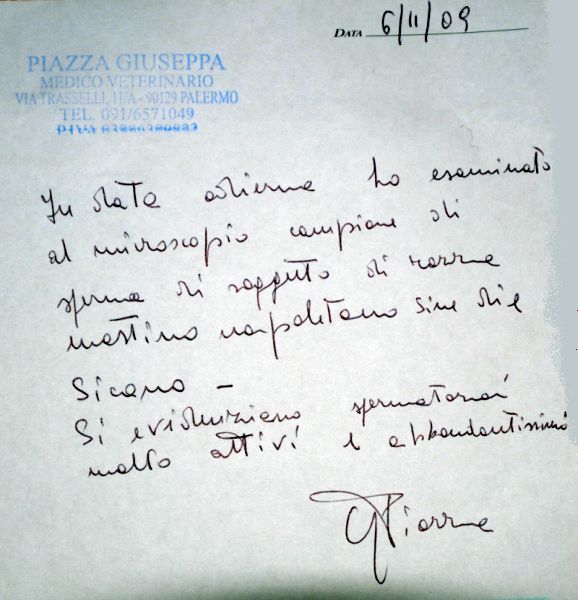 DATA 6/11/09
PIAZZA GIUSEPPA
MEDICO VETERINARIO
VIA TRASSELLI, 11/A - 90129 PALERMO
TEL. 091/6571049
P.IVA
In data odierna ho esaminato
al microscopio campione di
sperma di soggetto di razza
mastino napoletano Sine die
Sicano -
Si evidenziano spermatozoi
molto attivi e abbondantissimi
G Piazza